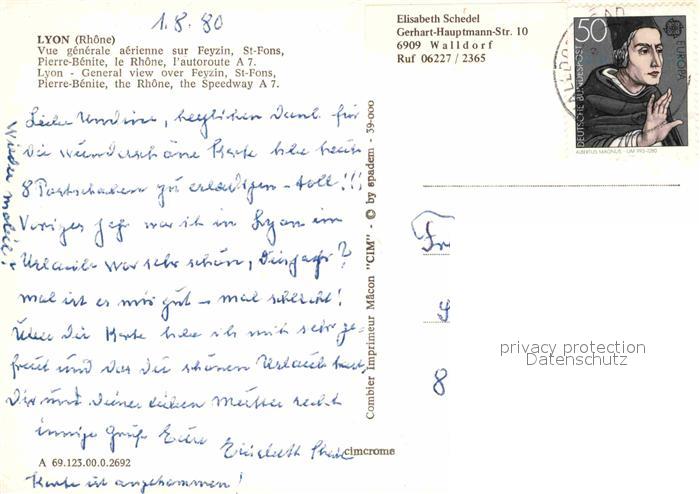 1.8.80
LYON (Rhône)
Vue générale aérienne sur Feyzin, St-Fons,
Pierre-Bénite, le Rhône, l'autoroute A 7.
Lyon - General view over Feyzin, St-Fons,
Pierre-Bénite, the Rhône, the Speedway A 7.
Liebe Undine, herzlichen Dank für
die wunderschöne Karte habe heute
8 Postsachen zu erledigen - toll!!!
Voriges Jahr war ich in Lyon im
Urlaub war sehr schön, Dies Jahr?
mal ist es mir gut - mal schlecht!
Über die Karte habe ich mich sehr ge-
freut und das du schönen Urlaub hast
Dir und deiner lieben Mutter recht
innige Grüße Eure Elisabeth
Karte ist angekommen!
Wieder mobil!
A 69.123.00.0.2692
cimcrome
Combier Imprimeur Mâcon "CIM" - © by spadem - 39-000
Elisabeth Schedel
Gerhart-Hauptmann-Str. 10
6909 Walldorf
Ruf 06227 / 2365
50
EUROPA
DEUTSCHE BUNDESPOST
ALBERTUS MAGNUS · UM 1193-1280
Fr
8
privacy protection
Datenschutz